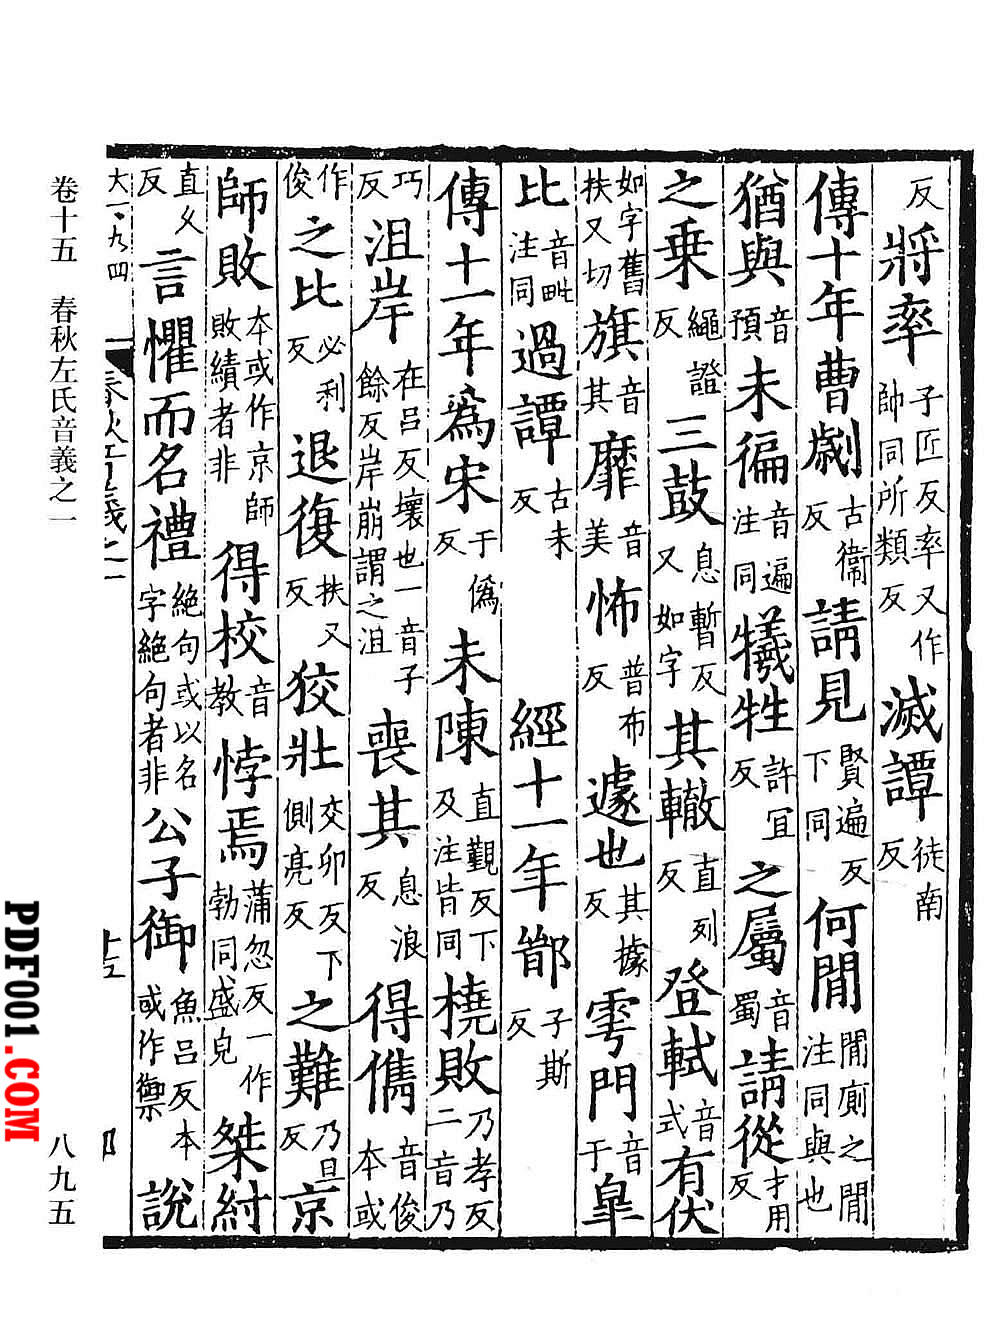 反將率子匠反率又作帥同所類反滅譚徒南反
傳十年曹劌古衛反請見賢遍反下同何閒閒廁之閒注同與也
猶與音預未徧音遍注同犧牲許宜反之屬音蜀請從才用反
之乗繩證反三鼓息暫反又如字其轍直列反登軾音式有伏
如字舊扶又切旗音其靡音美怖普布反遽也其據反雩門音于皐
比音毗注同過譚古禾反經十一年鄑子斯反
傳十一年爲宋于僞反未陳直覲反下及注皆同橈敗乃孝反二音乃
巧反沮岸在吕反壞也一音子餘反岸崩謂之沮喪其息浪反得儁音俊本或
作俊之比必利反退復扶又反狡壯交卯反下側亮反之難乃旦反京
師敗本或作京師敗績者非得校音教悖焉蒲忽反一作勃同盛皃桀紂
直久反言懼而名禮絶句或以名字絶句者非公子御魚吕反本或作禦說
大一·九四
春秋左氏音義之一
卷十五 春秋左氏音義之一
八九五
PDF001.COM